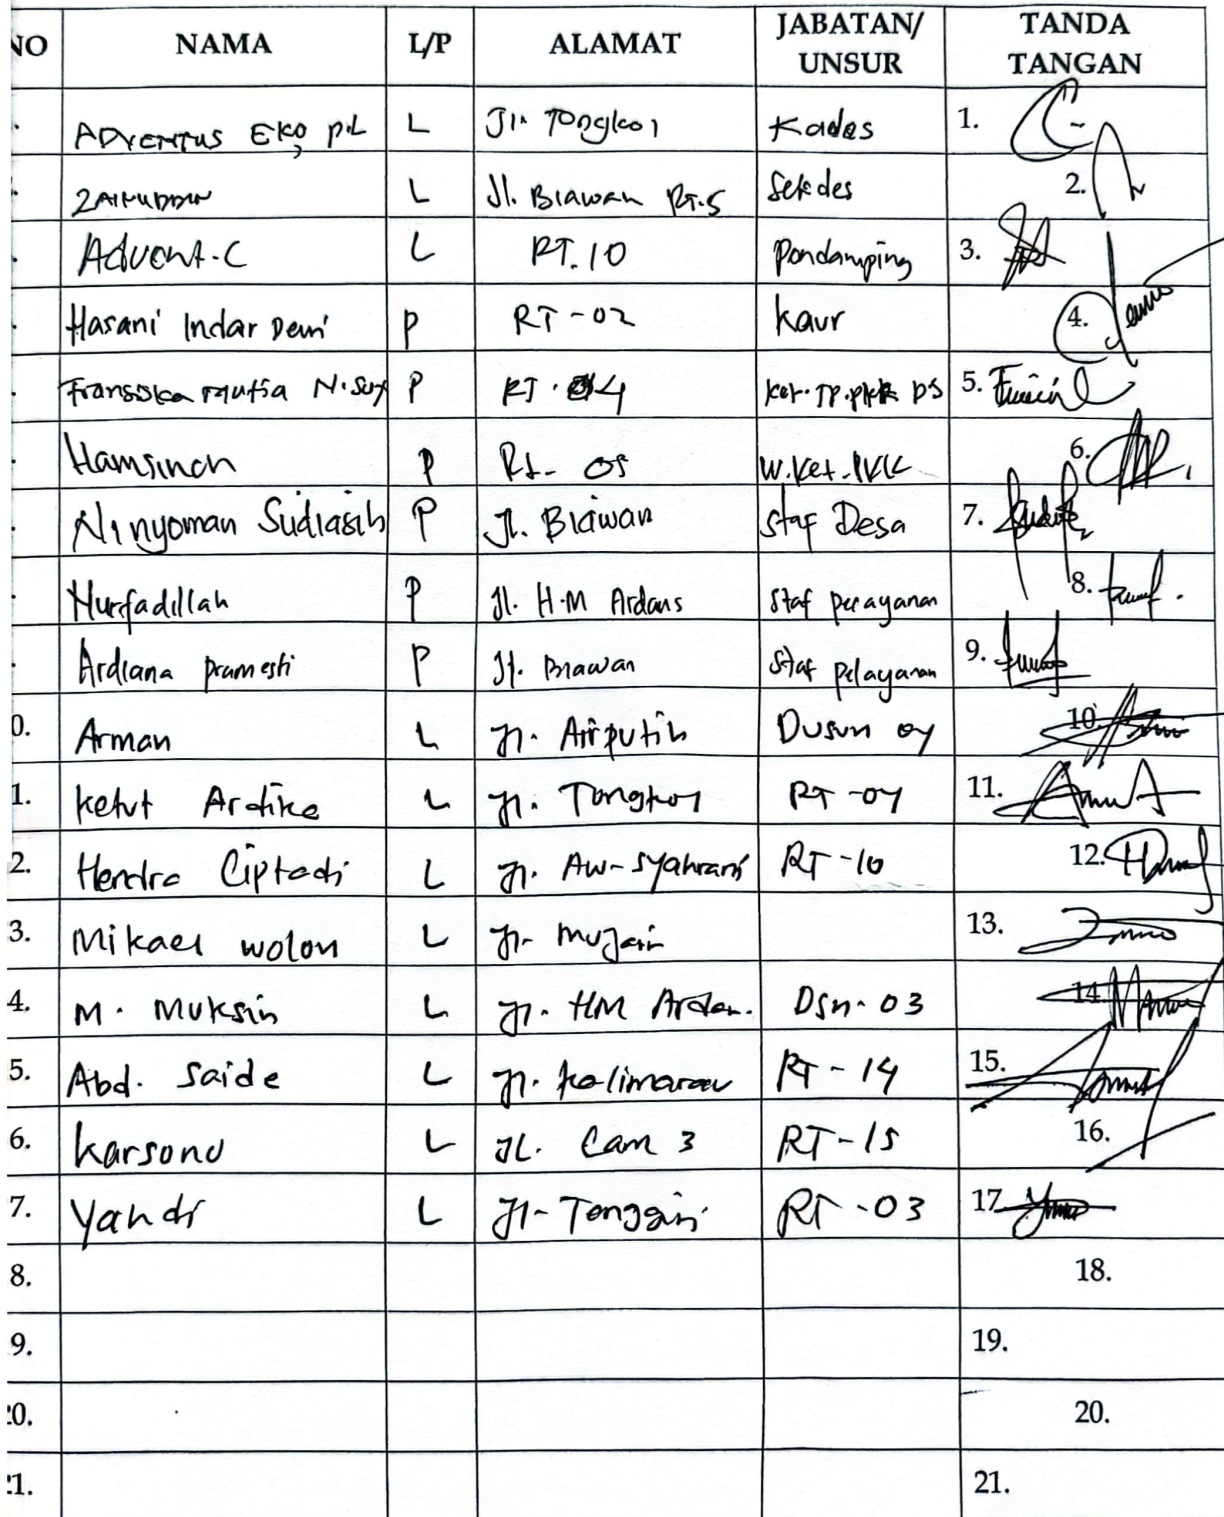 NO NAMA L/P ALAMAT JABATAN/ UNSUR TANDA TANGAN
ADVENTUS EKO, P.L L Jl. Tongkol Kades 1.
ZAINUDDIN L Jl. Biawan RT.5 Sekdes 2.
Advent.C L RT.10 Pendamping 3.
Hasani Indar Dewi P RT-02 Kaur 4.
Fransiska mutia N. P RT.04 Ket.TP.PKK DS 5.
Hamsinah P Rt- 05 W.Ket.PKK 6.
Ninyoman Sudiasih P Jl. Biawan Staf Desa 7.
Nurfadillah P Jl. H.M Ardans Staf pelayanan 8.
Ardiana pramesti P Jl. Biawan Staf pelayanan 9.
0. Arman L Jl. Airputih Dusun 04 10.
1. Ketut Ardika L Jl. Tongkol RT-04 11.
2. Hendra Ciptadi L Jl. Aw-Syahrani RT-10 12.
3. Mikael wolon L Jl- Mujair 13.
4. M. Muksin L Jl. HM Ardan. Dsn-03 14
5. Abd. Saide L Jl. Kalimarau RT-14 15.
6. Karsono L JL. Cam 3 RT-15 16.
7. Yandi L Jl- Tenggiri RT-03 17
8. 18.
9. 19.
20. 20.
21. 21.